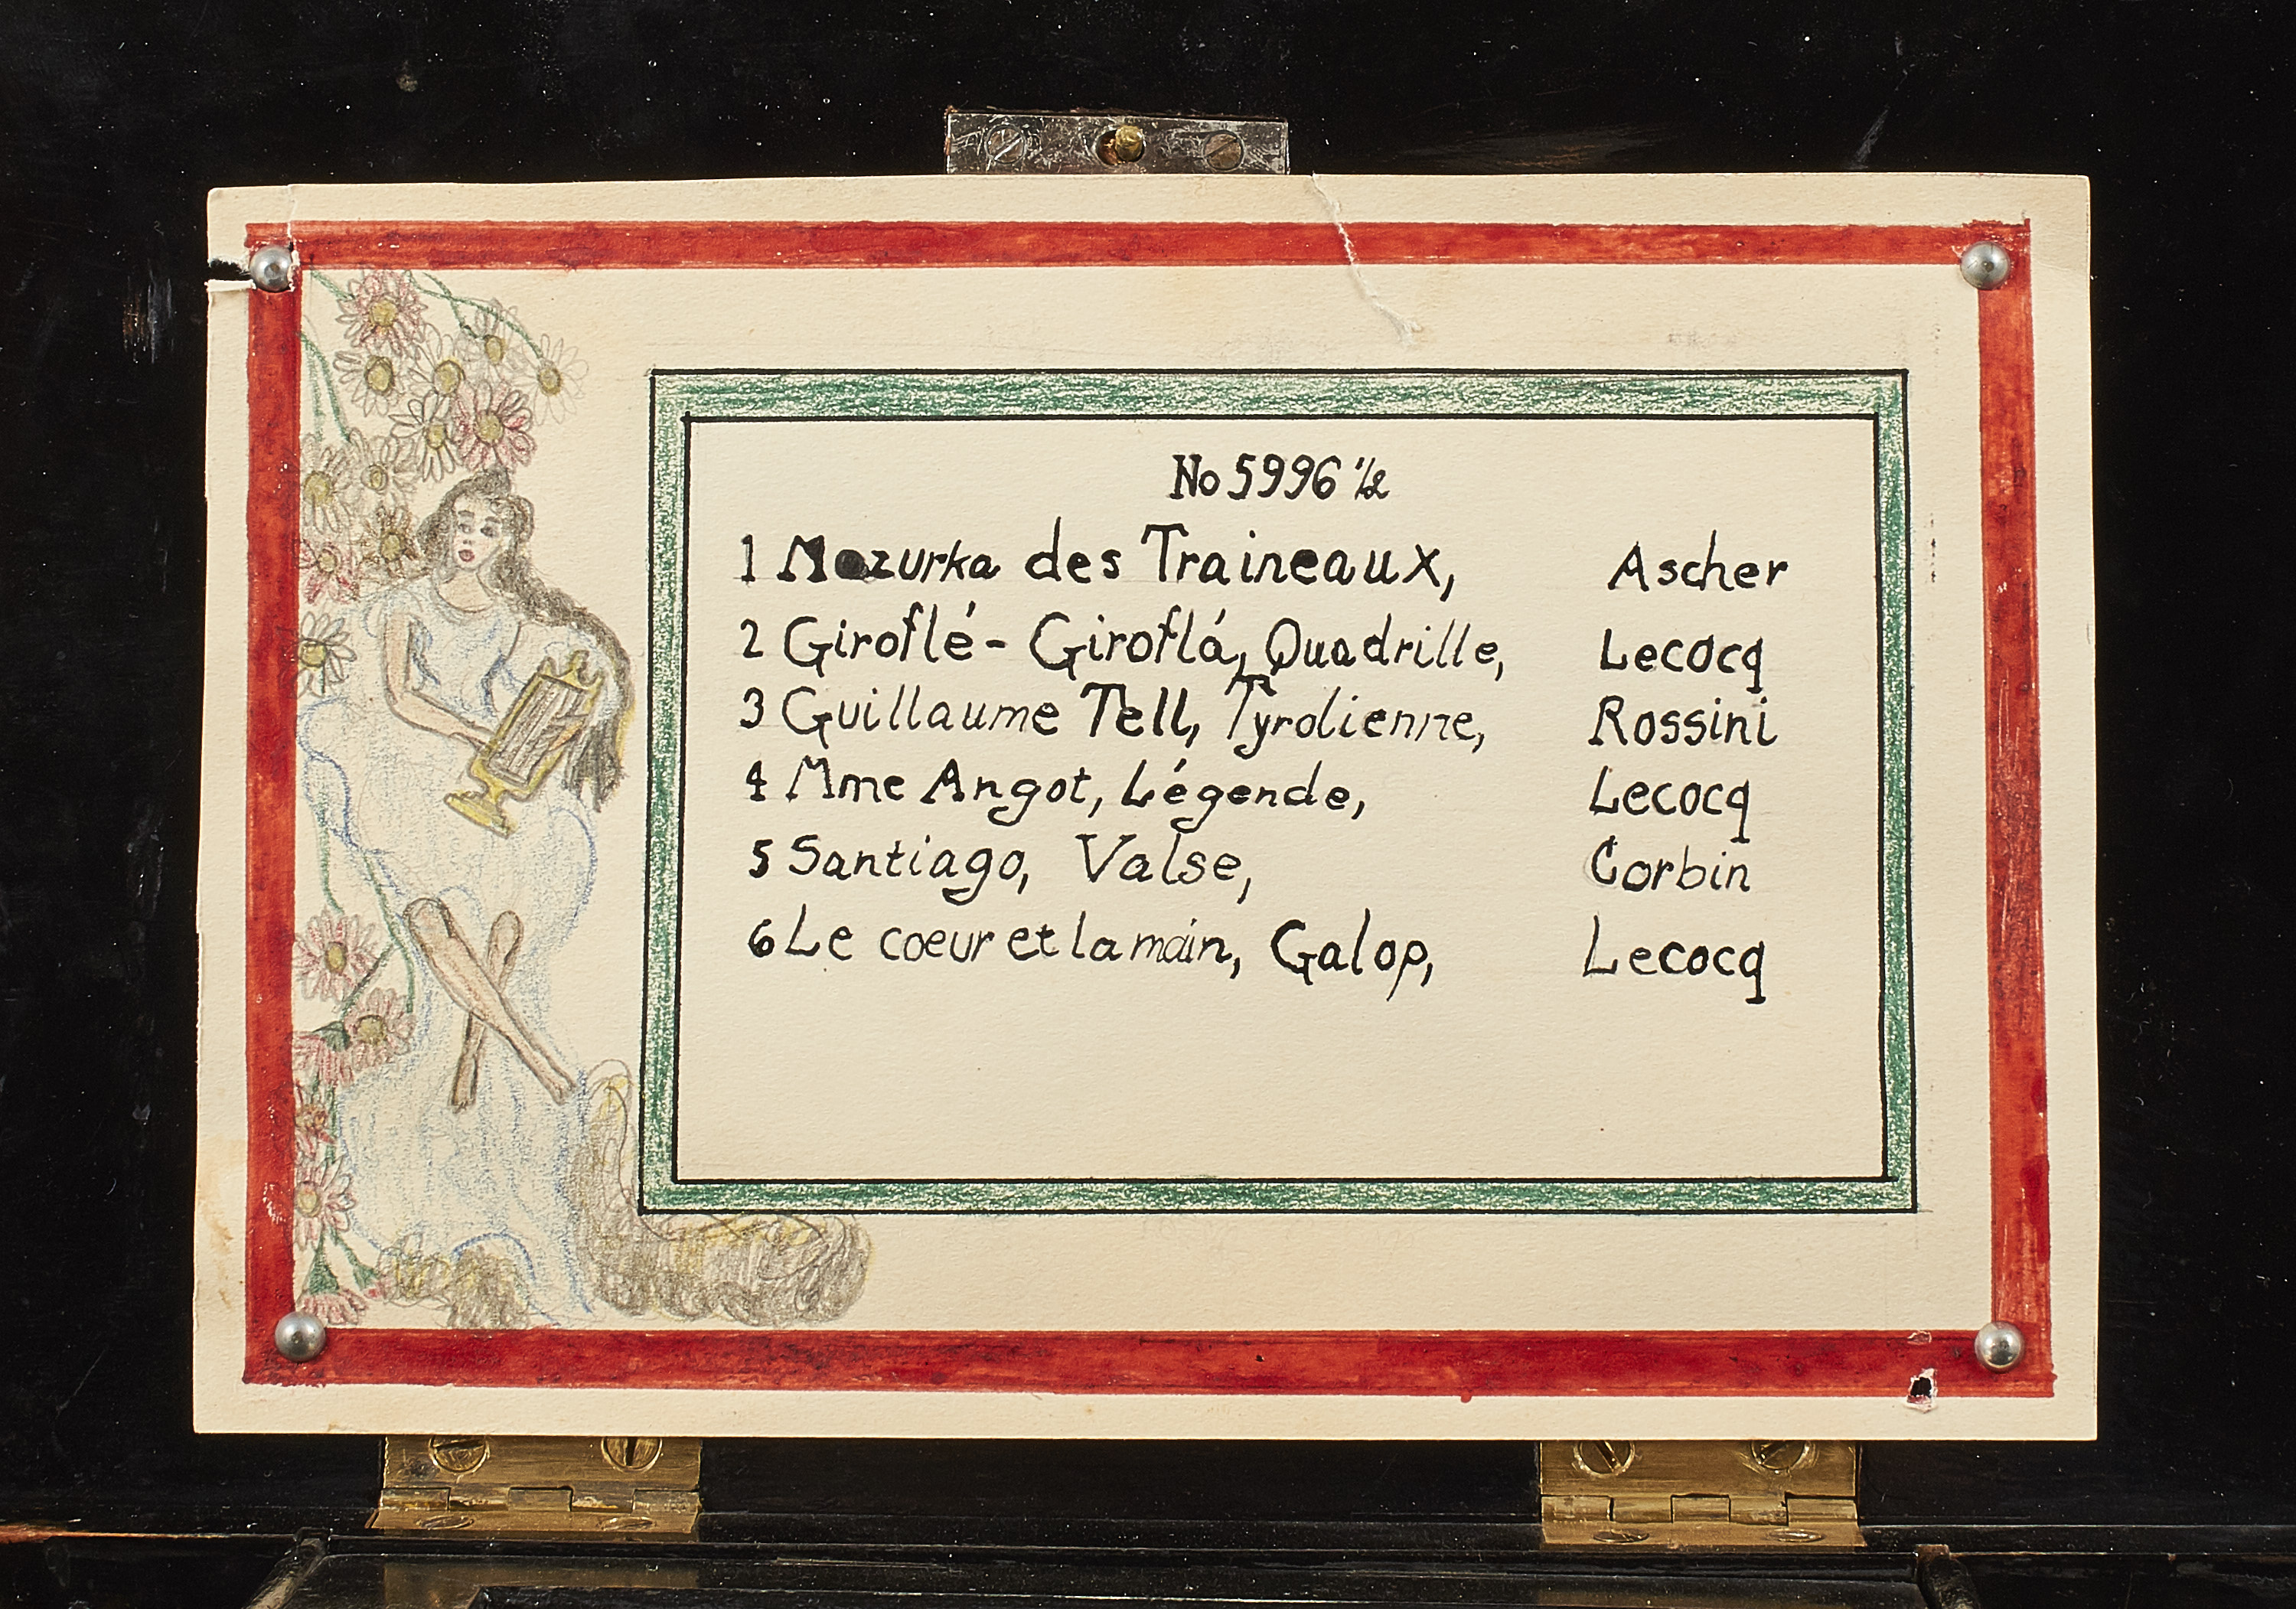 No 5996 1/2
1 Mazurka des Traineaux, Ascher
2 Giroflé- Giroflá, Quadrille, Lecocq
3 Guillaume Tell, Tyrolienne, Rossini
4 Mme Angot, Légende, Lecocq
5 Santiago, Valse, Corbin
6 Le coeur et la main, Galop, Lecocq